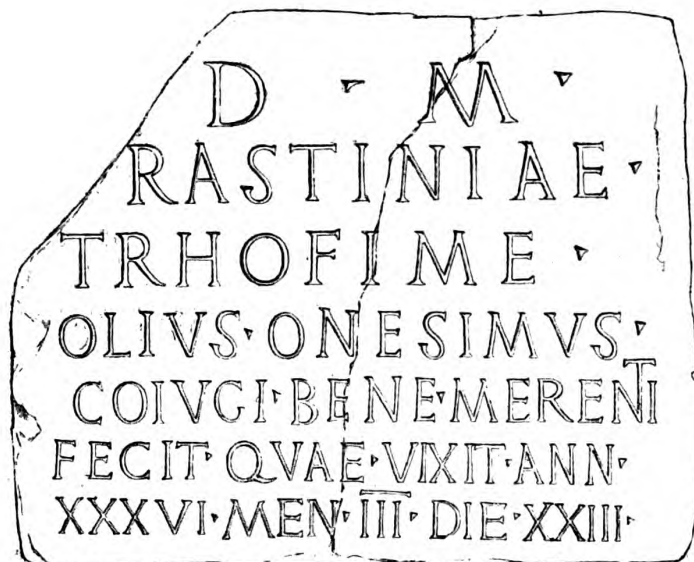 D · M ·
RASTINIAE ·
TRHOFIME ·
OLIVS · ONESIMVS ·
COIVGI · BENE · MERENTI
FECIT · QVAE · VIXIT · ANN ·
XXXVI · MEN · III · DIE · XXIII ·